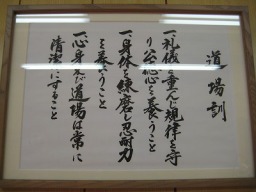 道場訓
一、礼儀を重んじ規律を守
り公徳心を養うこと
一、身体を練磨し忍耐力
を養うこと
一、心身及び道場は常に
清潔にすること